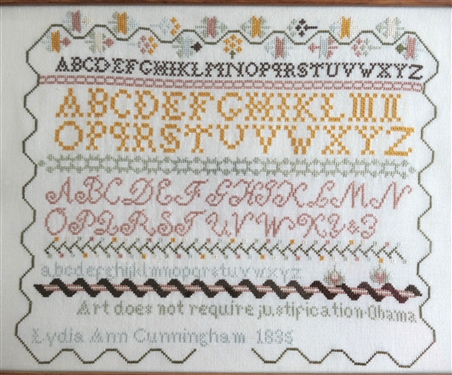 ABCDEFGHIKLMNOPQRSTUVWXYZ
ABCDEFGHIKLMN
OPQRSTUVWXYZ
ABCDEFGHIKLMN
OPQRSTUVWXYZ&3
abcdefghijklmnopqrstuvwxyz
Art does not require justification-Obama
Lydia Ann Cunningham 1835